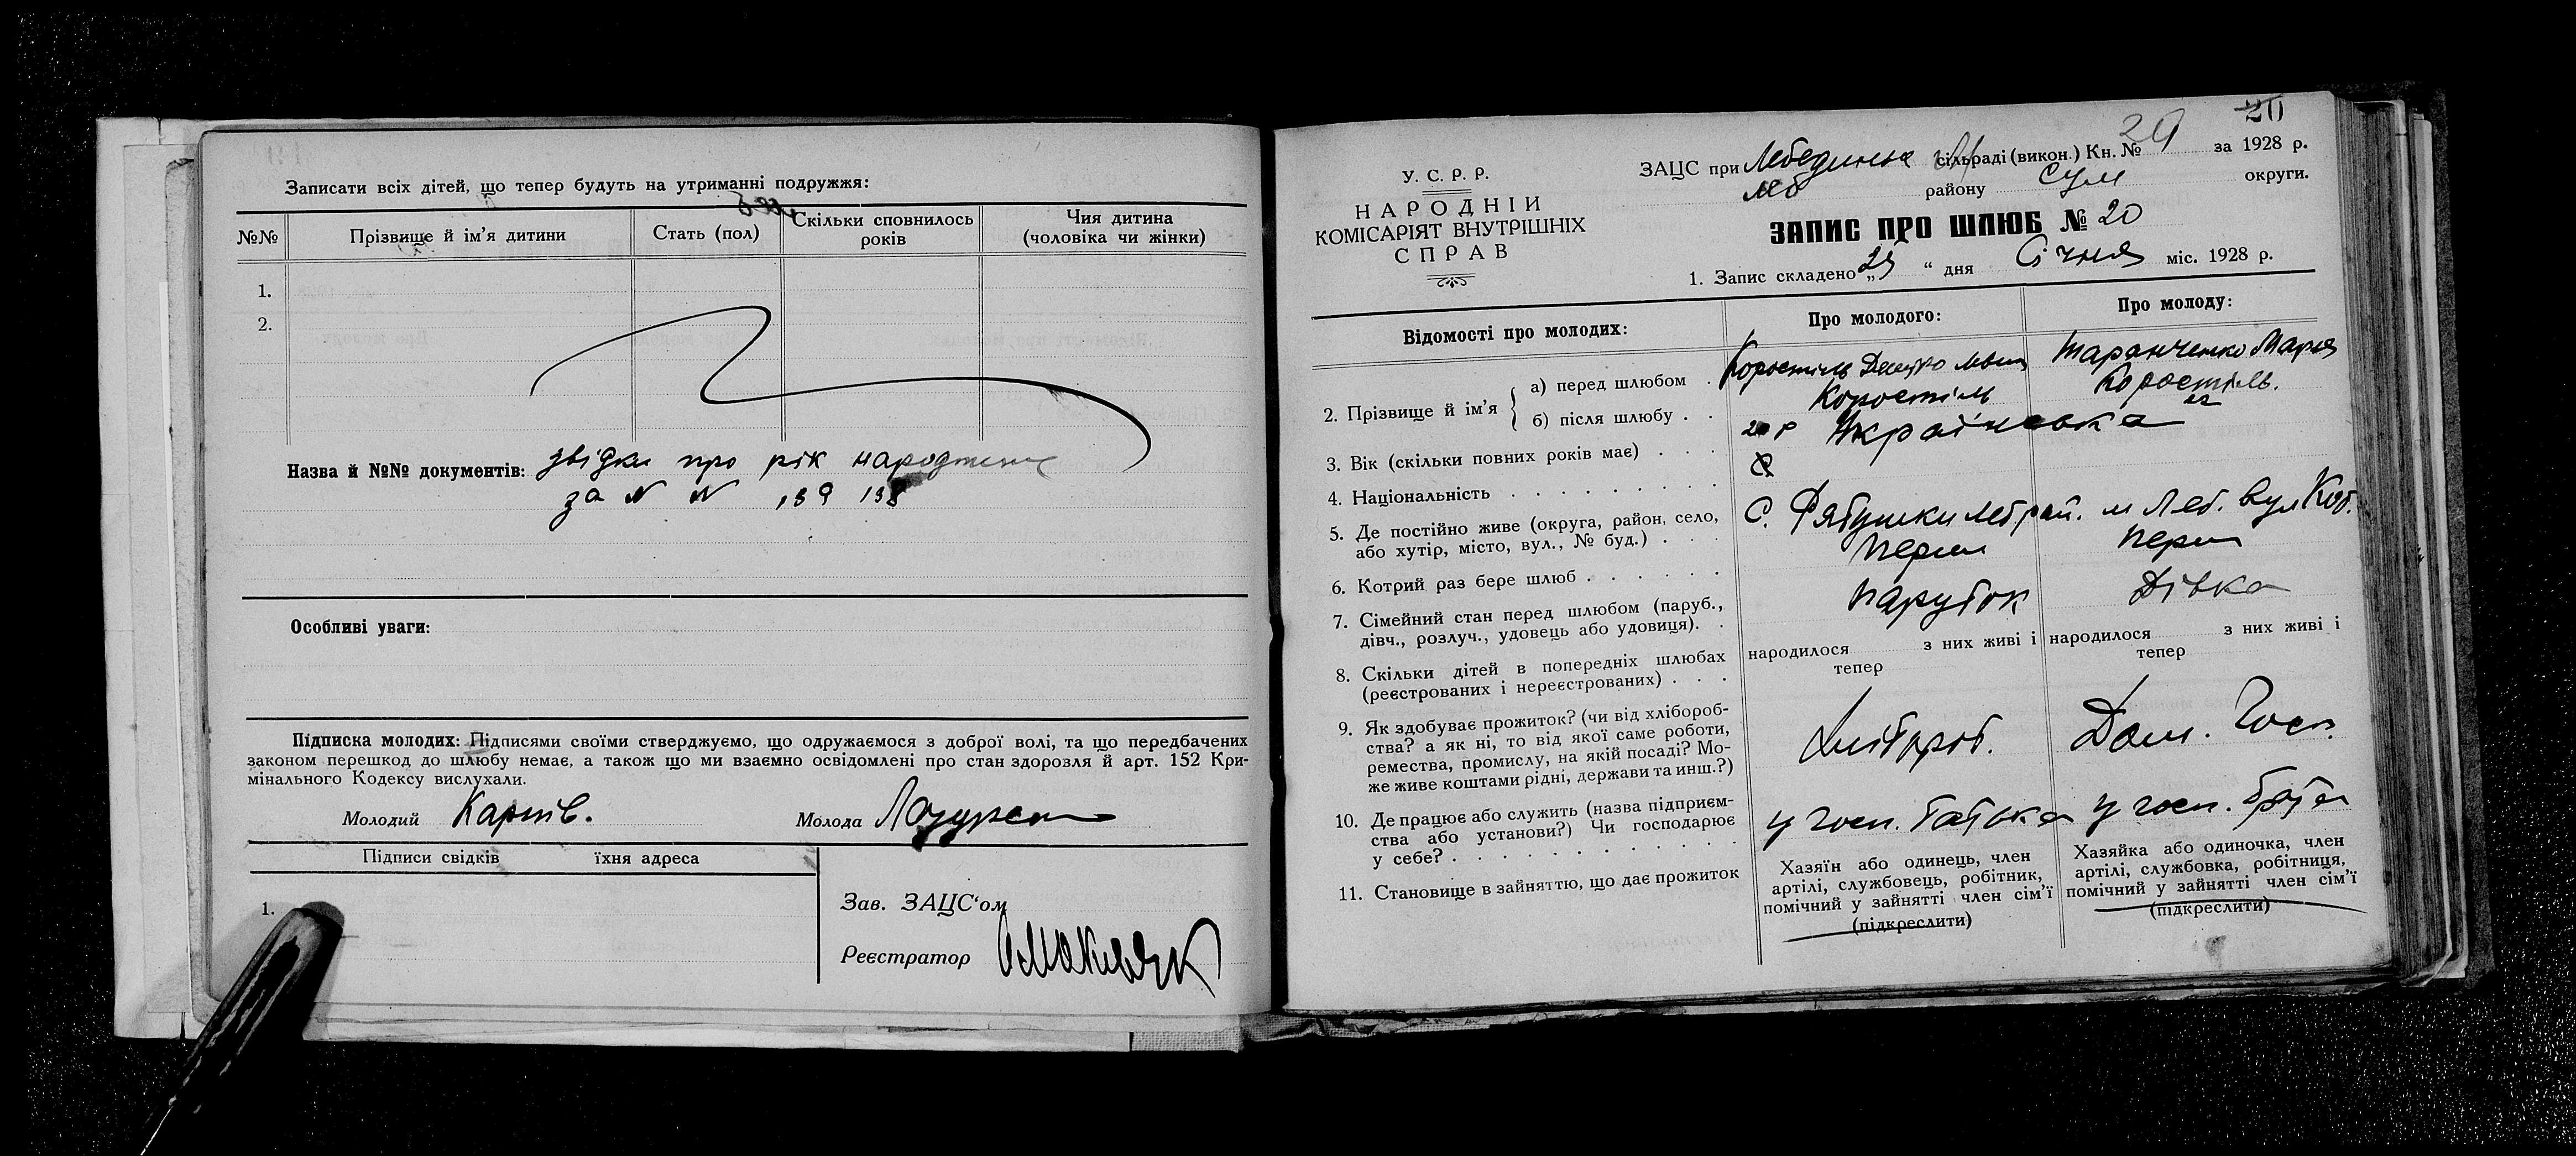 Записати всіх дітей, що тепер будуть на утриманні подружжя:
№№
Прізвище й ім'я дитини
Стать (пол)
Скільки сповнилось
років
Чия дитина
(чоловіка чи жінки)
1.
2.
Назва й №№ документів: звідки про рік народження
за N N 139 138
Особливі уваги:
Підписка молодих: Підписями своїми стверджуємо, що одружаємося з доброї волі, та що передбачених
законом перешкод до шлюбу немає, а також що ми взаємно освідомлені про стан здоровля й арт. 152 Кри-
мінального Кодексу вислухали.
Молодий
Молода
Підписи свідків їхня адреса
1.
Зав. ЗАЦС'ом
Реєстратор
20
У. С. Р. Р.
НАРОДНІЙ
КОМІСАРІЯТ ВНУТРІШНІХ
СПРАВ
ЗАЦС при Лебединськ сільраді (викон.) Кн. № за 1928 р.
Леб району Сум округи.
ЗАПИС ПРО ШЛЮБ № 20
1. Запис складено „ “ дня Січня міс. 1928 р.
Відомості про молодих:
Про молодого:
Про молоду:
2. Прізвище й ім'я
а) перед шлюбом
Коростіль
Таранченко Мария
б) після шлюбу . .
Коростіль
Коростіль.
3. Вік (скільки повних років має) . . .
4. Національність . . . . . . . . .
Українська
5. Де постійно живе (округа, район, село,
або хутір, місто, вул., № буд.) . . .
С. Рябушки Леб рай.
м Леб. вул Коб.
6. Котрий раз бере шлюб . . . . . .
перш
перш
7. Сімейний стан перед шлюбом (паруб.,
дівч., розлуч., удовець або удовиця). .
парубок
Дівка
8. Скільки дітей в попередніх шлюбах
(реєстрованих і нереєстрованих) . . .
народилося з них живі і
тепер
народилося з них живі і
тепер
9. Як здобуває прожиток? (чи від хлібороб-
ства? а як ні, то від якої саме роботи,
ремества, промислу, на якій посаді? Мо-
же живе коштами рідні, держави та инш.?)
Хлібороб.
Дом. Госп.
10. Де працює або служить (назва підприєм-
ства або установи?) Чи господарює
у себе? . . . . . . . . . . . .
у госп. батька
у госп. брата
11. Становище в зайняттю, що дає прожиток
Хазяїн або одинець, член
артілі, службовець, робітник,
помічний у зайнятті член сім'ї
(підкреслити)
Хазяйка або одиночка, член
артілі, службовка, робітниця,
помічний у зайнятті член сім'ї
(підкреслити)